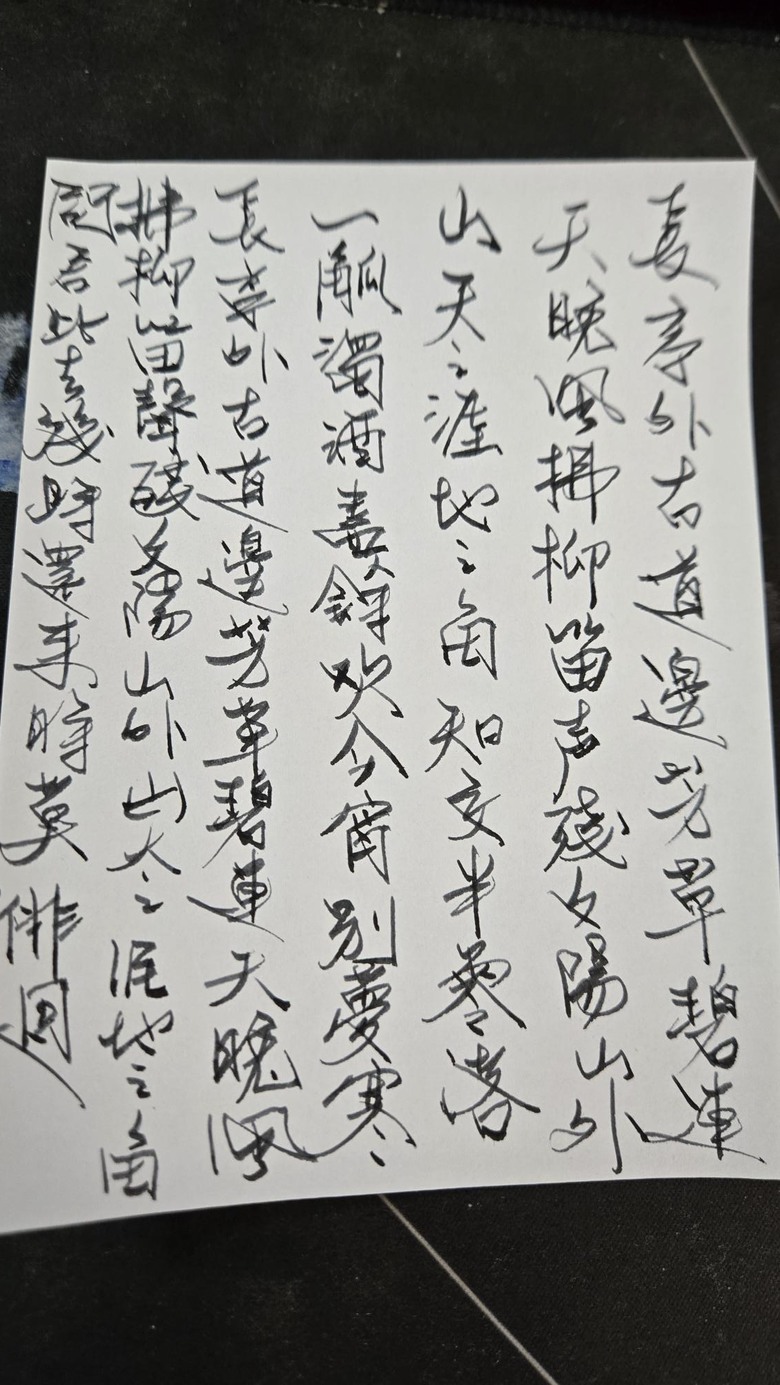 長亭外古道邊芳草碧連
天晚風拂柳笛声殘夕陽山外
山天之涯地之角知交半零落
一瓢濁酒盡餘歡今宵別夢寒
長亭外古道邊芳草碧連天晚風
拂柳笛聲殘夕陽山外山天之涯地之角
問君此去幾時還来時莫徘徊